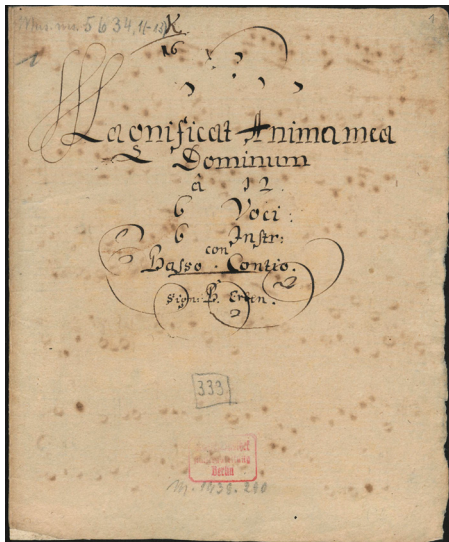 Mus. ms. 5634,
K
16
1
Magnificat Anima mea
Dominum
à 12.
6 Voci:
6 Instr:
con
Basso. Contio.
Sign: B. Erben.
333
Berlin
M. 1438. 280